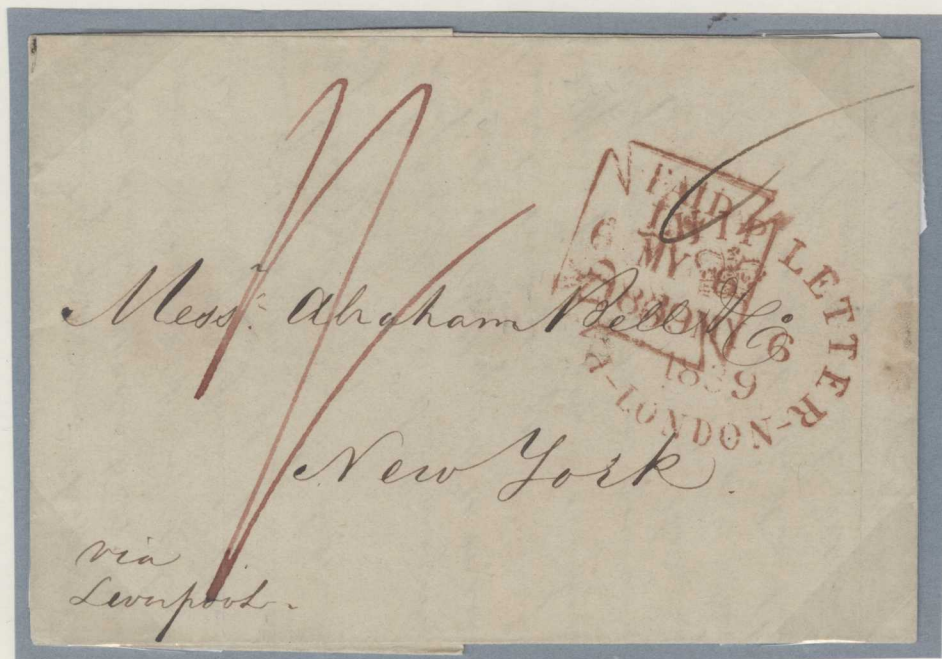 PAID
MY 6
SHIP LETTER-LONDON
MY 6
1839
6
Mess.rs Abraham Bell & Co
New York
via
Liverpool.